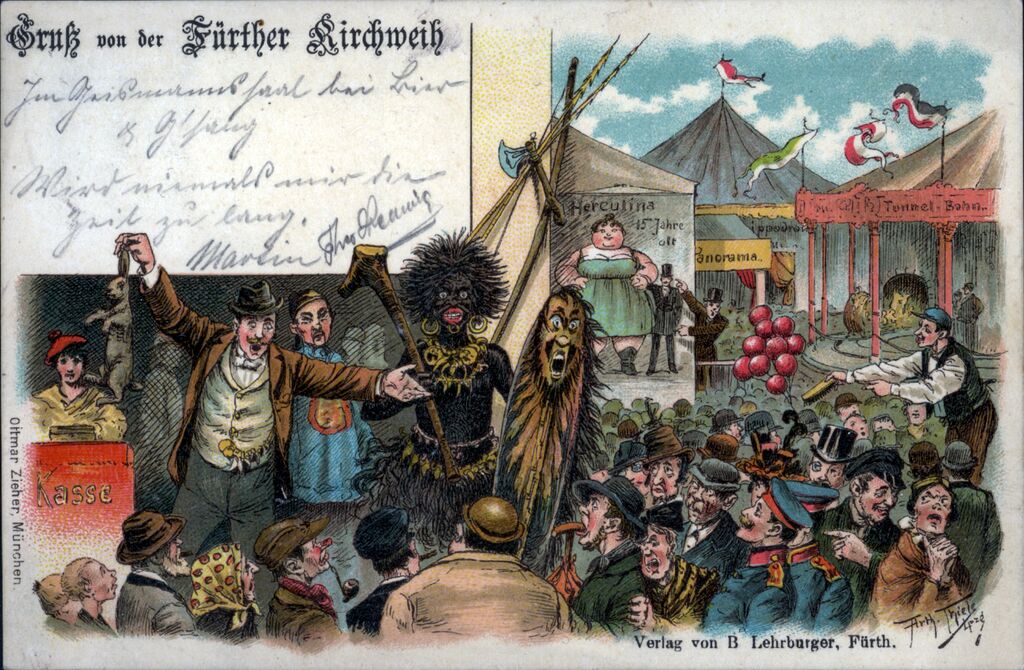 Gruß von der Fürther Kirchweih
Im Geismannssaal bei Bier
& G'sang
Wird niemals mir die
Zeit zu lang.
Martin
Herculina
15 Jahre
alt
Panorama.
Tunnel-Bahn.
Kasse
Ottmar Zieher, München
Verlag von B Lehrburger, Fürth.
Arth. Thiele
Lpzg